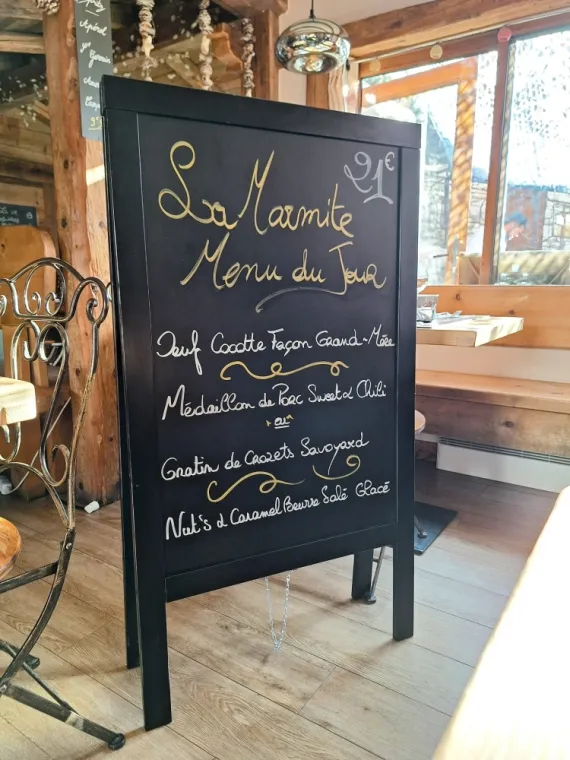 Apérol
21€
La Marmite
Menu du Jour
Oeuf Cocotte Façon Grand-Mère
Médaillon de Porc Sweet & Chili
ou
Gratin de Crozets Savoyard
Nut's & Caramel Beurre Salé Glacé